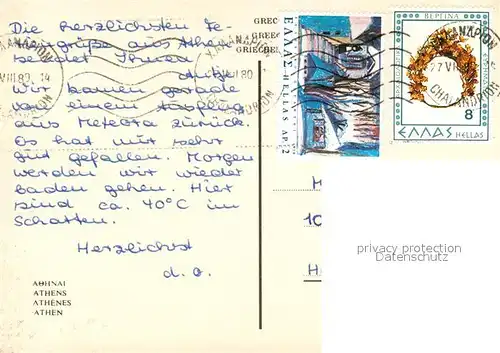 Die herzlichsten Fe-
riengrüße aus Athen
sendet Ihnen
Antje
Wir kamen gerade
von einem Ausflug
aus Meteora zurück.
Es hat mir sehr
gut gefallen. Morgen
werden wir wieder
baden gehen. Hier
sind ca. 40°C im
Schatten.
Herzlichst
d. O.
ΑΘΗΝΑΙ
ATHENS
ATHÈNES
ATHEN
GREC
GREE
GRIECHE
ΕΛΛΑΣ-HELLAS ΔΡ. 2
ΒΕΡΓΙΝΑ
8
ΕΛΛΑΣ HELLAS
ΧΑΛΑΝΔΡΙΟΝ
CHALANDRION
H
10
H
privacy protection
Datenschutz